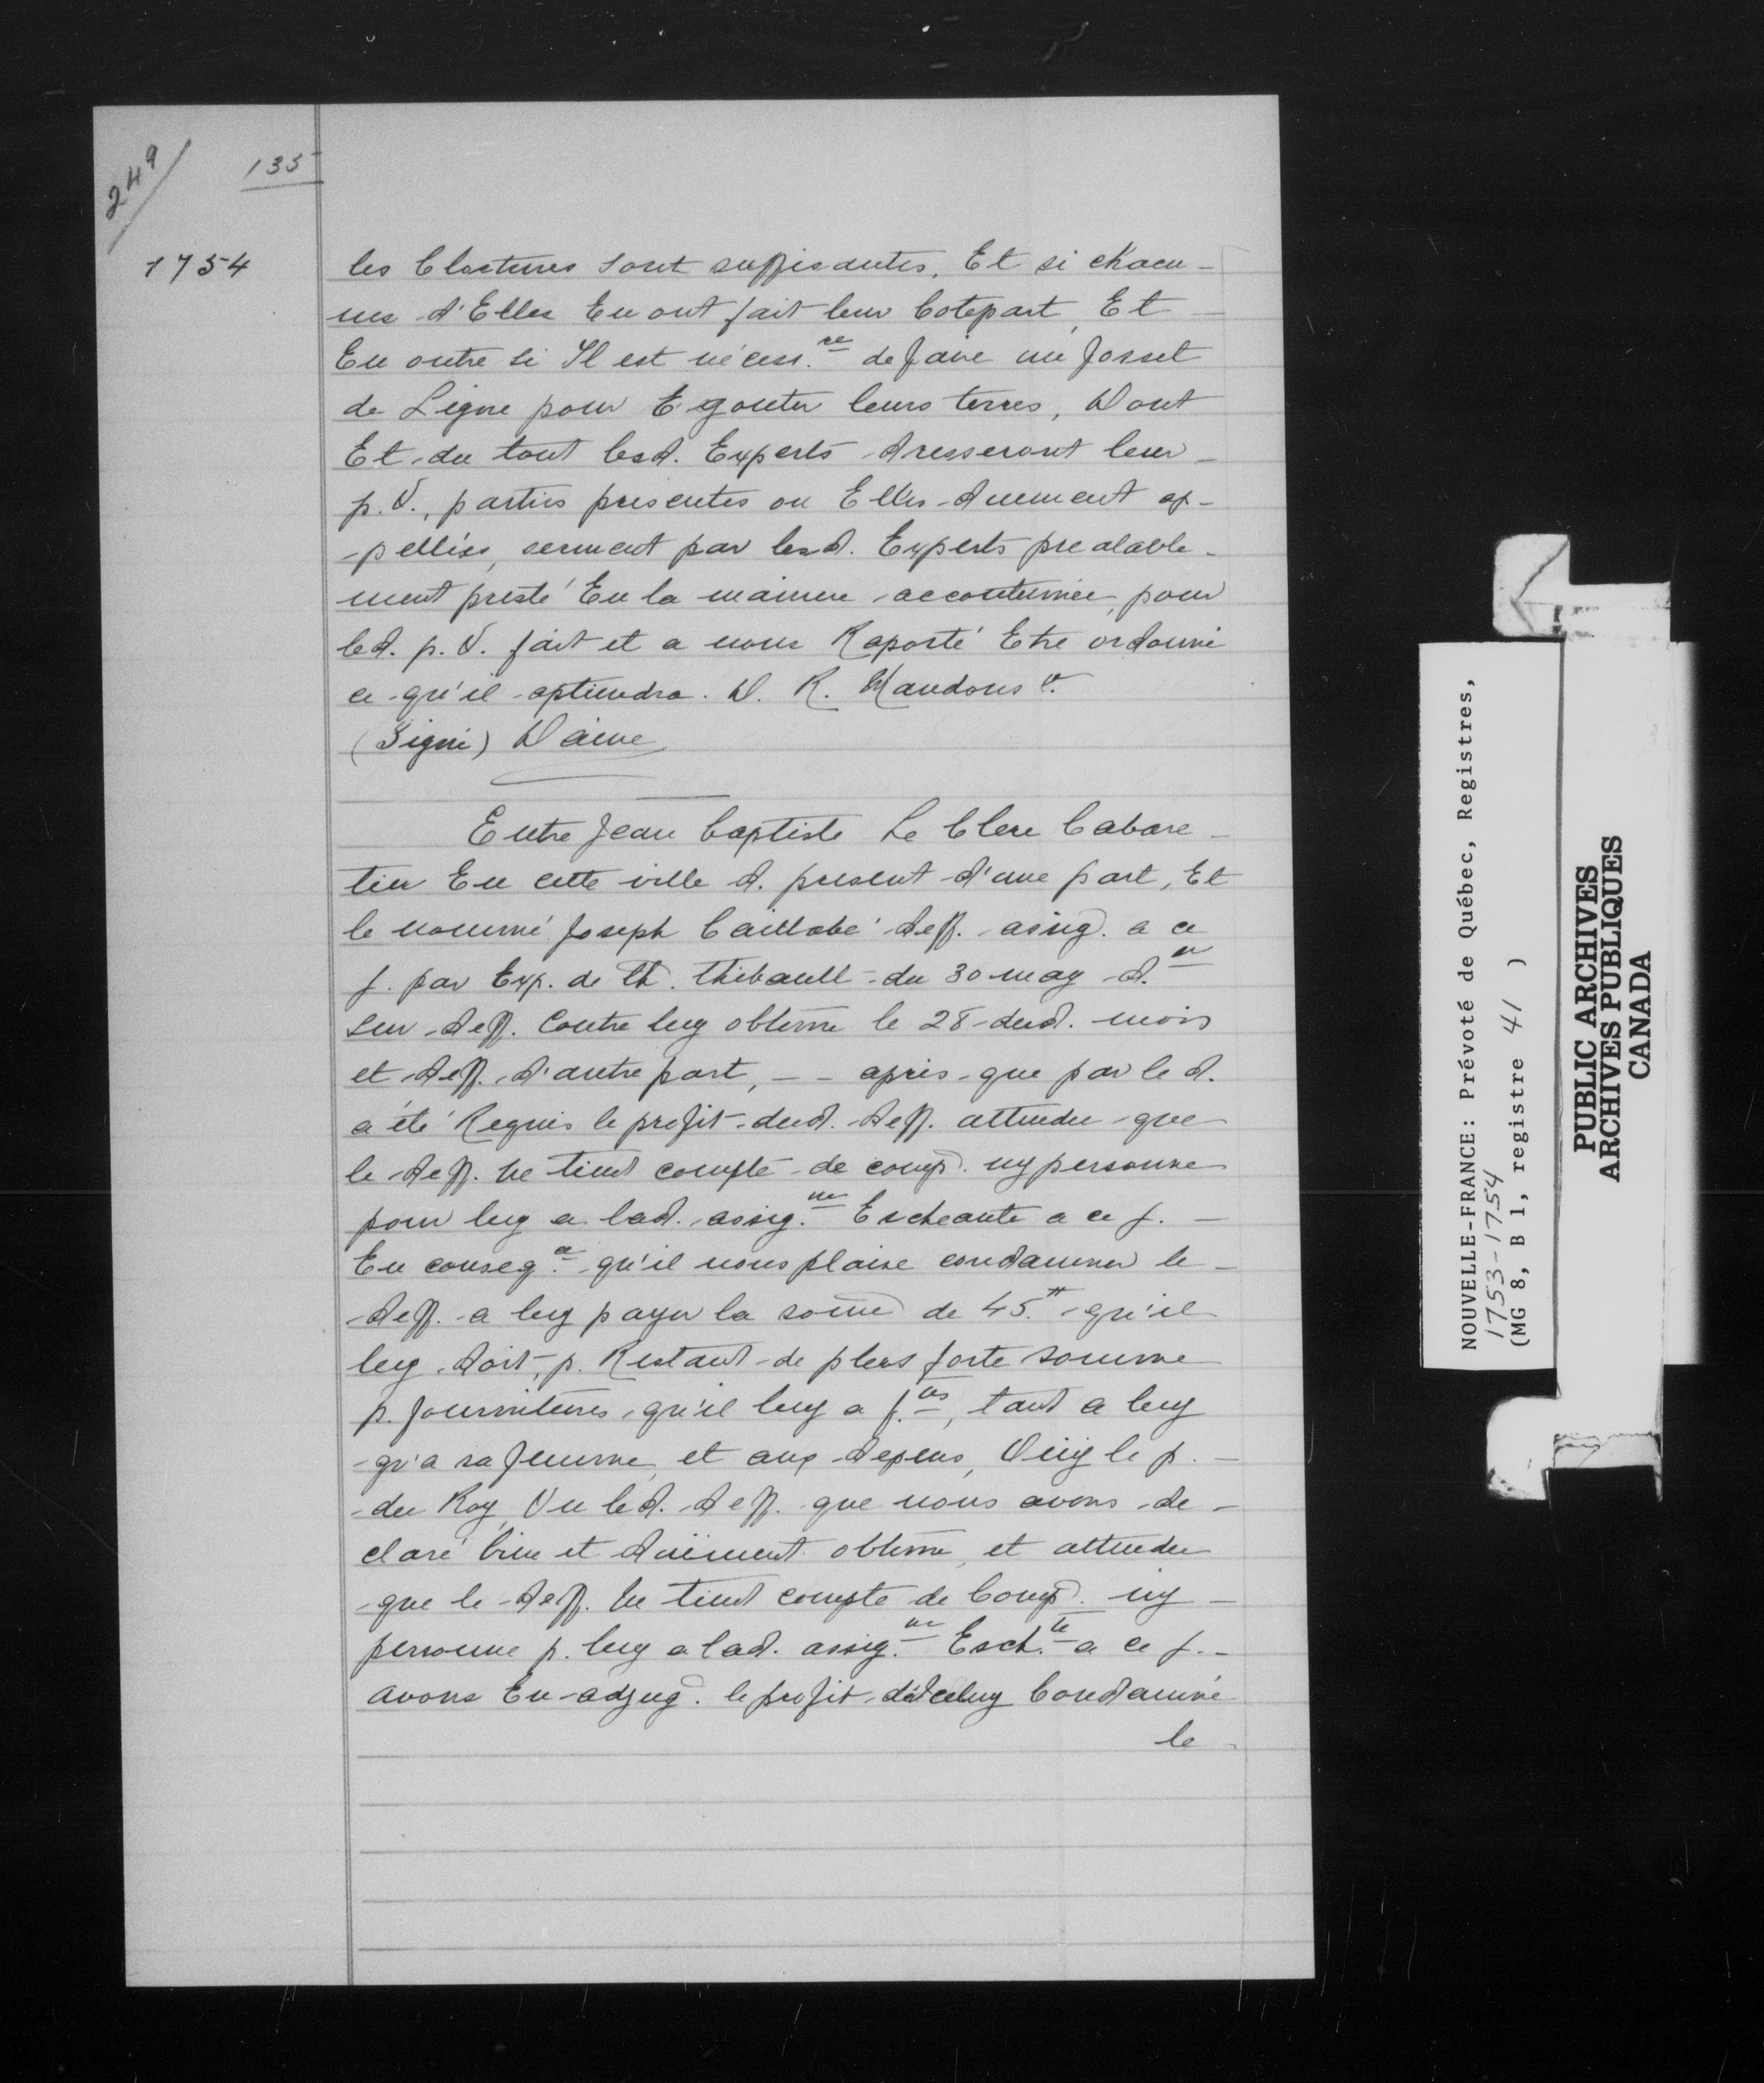 249
135
1754
les Cloctures sont suffisantes, Et si chacu-
nes d'Elles En ont fait leur Cotepart, Et
En outre si Il est nécess.re de faire un fosset
de Ligne pour Egouter leurs terres, Dont
Et du tout lesd. Experts dresseront leur
p. V., parties presentes ou Elles duement ap-
-pellées, serment par lesd. Experts prealable-
ment presté En la maniere accoutumée, pour
led. p. V. fait et a nous Raporté Etre ordonné
ce qu'il aptiendra. D. R. Mandons &.
(Signé) Daine
Entre Jean baptiste Le Clerc Cabare-
tier En cette ville d. present d'une part, Et
le nommé Joseph Caillabé deff. asig. a ce
j. par Exp. de Th. Thibault du 30 may d.er
sur deff. Contre luy obtenu le 28 dud. mois
et deff. d'autre part, -- après que par le d.
a été Requis le profit dud. deff. attendu que
le deff. Ne tient compte de comp. ny personne
pour luy a lad. assig.on Escheante a ce j. -
En conseq.ce qu'il nous plaise condamner le
deff. a luy payer la somme de 45.tt qu'il
luy doit, p. Restant de plus forte somme
p. fournitures qu'il luy a f.tes, tant a luy
qu'a sa femme, et aux depens, Ouïy le p. -
du Roy, Vu led. deff. que nous avons de-
claré bien et düement obtenu, et attendu
que le deff. Ne tient compte de Comp. ny
personne p. luy a lad. assig.on Esch.te a ce j. -
avons En adjug. le profit d'iceluy Condamné
le
NOUVELLE-FRANCE: Prévoté de Québec, Registres,
1753-1754
(MG 8, B 1, registre 41 )
PUBLIC ARCHIVES
ARCHIVES PUBLIQUES
CANADA